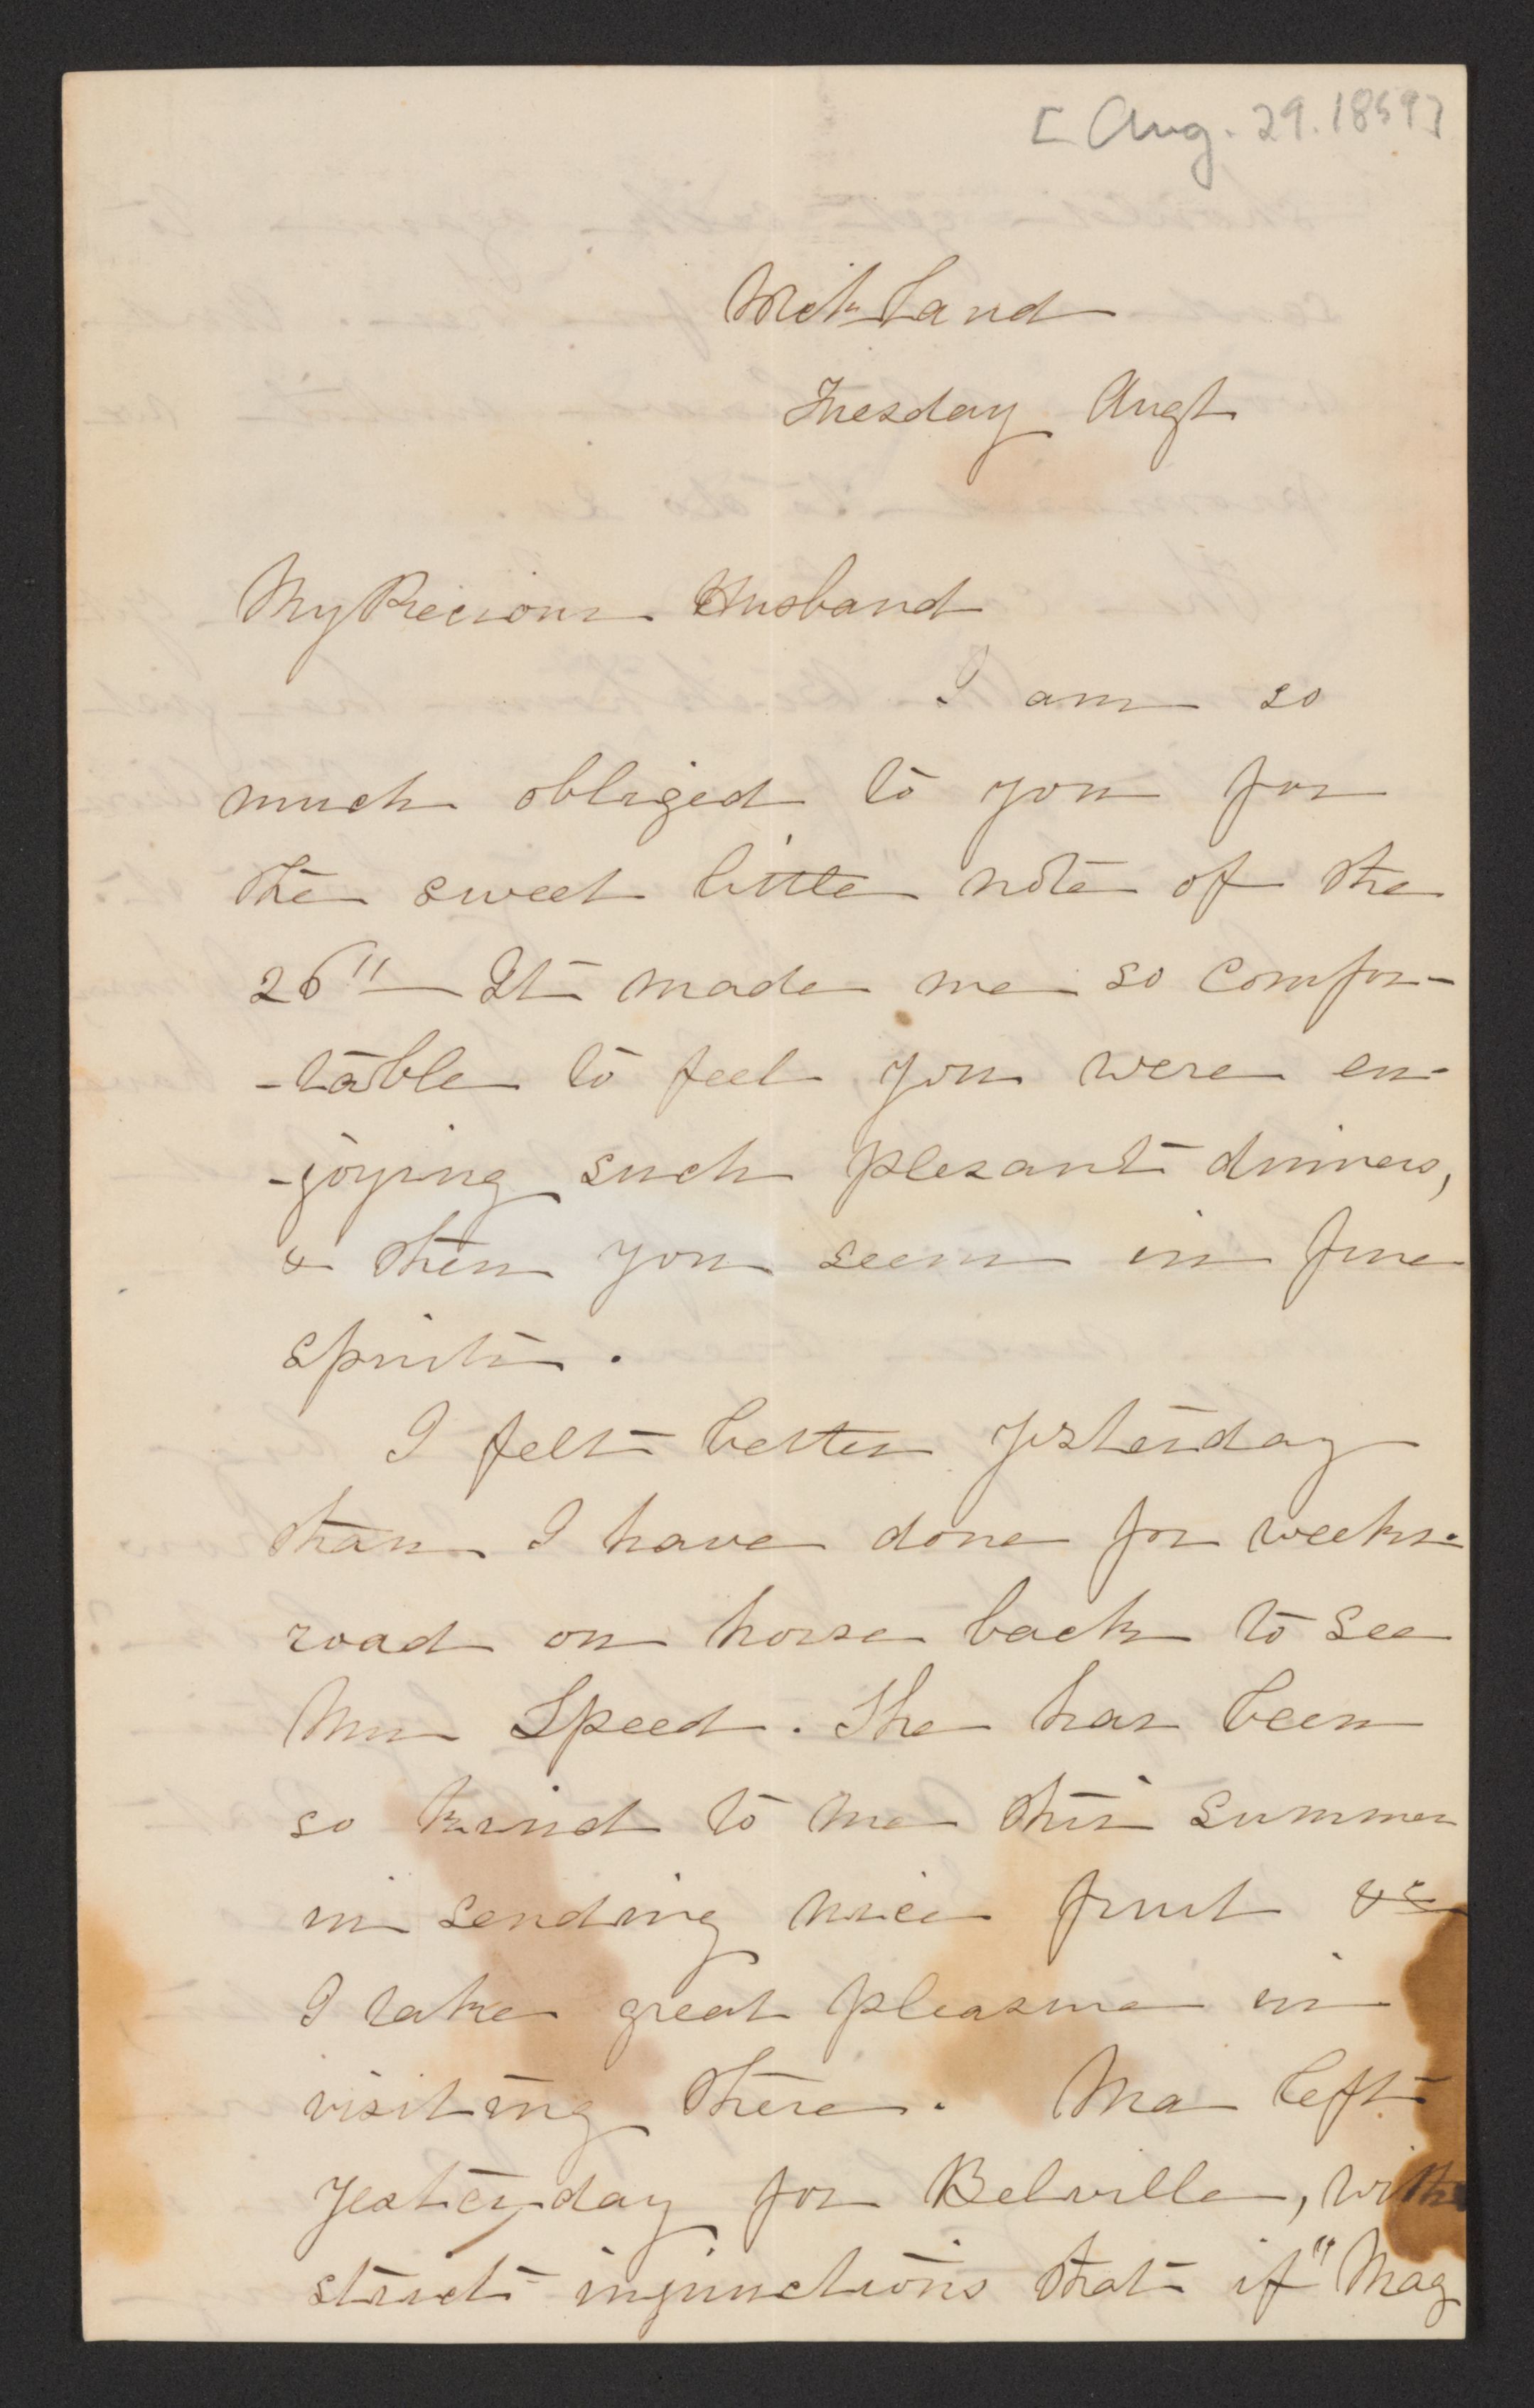 [Aug. 29. 1859]
Wickland
Tuesday Augt
My Precious Husband
I am so
much obliged to you for
the sweet little note of the
26" It made me so comfor-
-table to feel you were en-
-joying such plesant dinners,
& then you seem in fine
spirits.
I felt better yesterday
than I have done for weeks.
road on horse back to see
Mrs Speed. She has been
so kind to me this summer
in sending nice fruit &c
I take great pleasure in
visiting there. Ma left
yesterday for Belville, with
strict injunctions that if "Mag